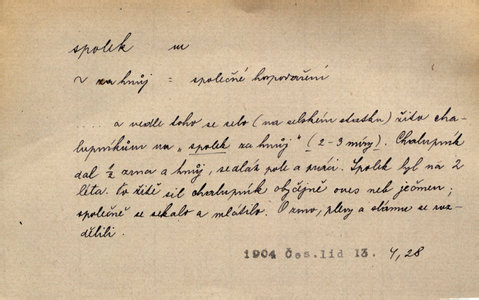 spolek m
~ za hnůj = společné hospodaření
.... a vedle toho se selo (na selském statku) žito cha-
lupníkům na "spolek za hnůj" (2-3 míry). Chalupník
dal ½ zrna a hnůj, sedlák pole a práci. Spolek byl na 2
léta. Po žitě sil chalupník obyčejně oves neb ječmen;
společně se sekalo a mlátilo. O zrno, plevy a slámu se roz-
dělili.
1904 Čes. lid 13. 4,28